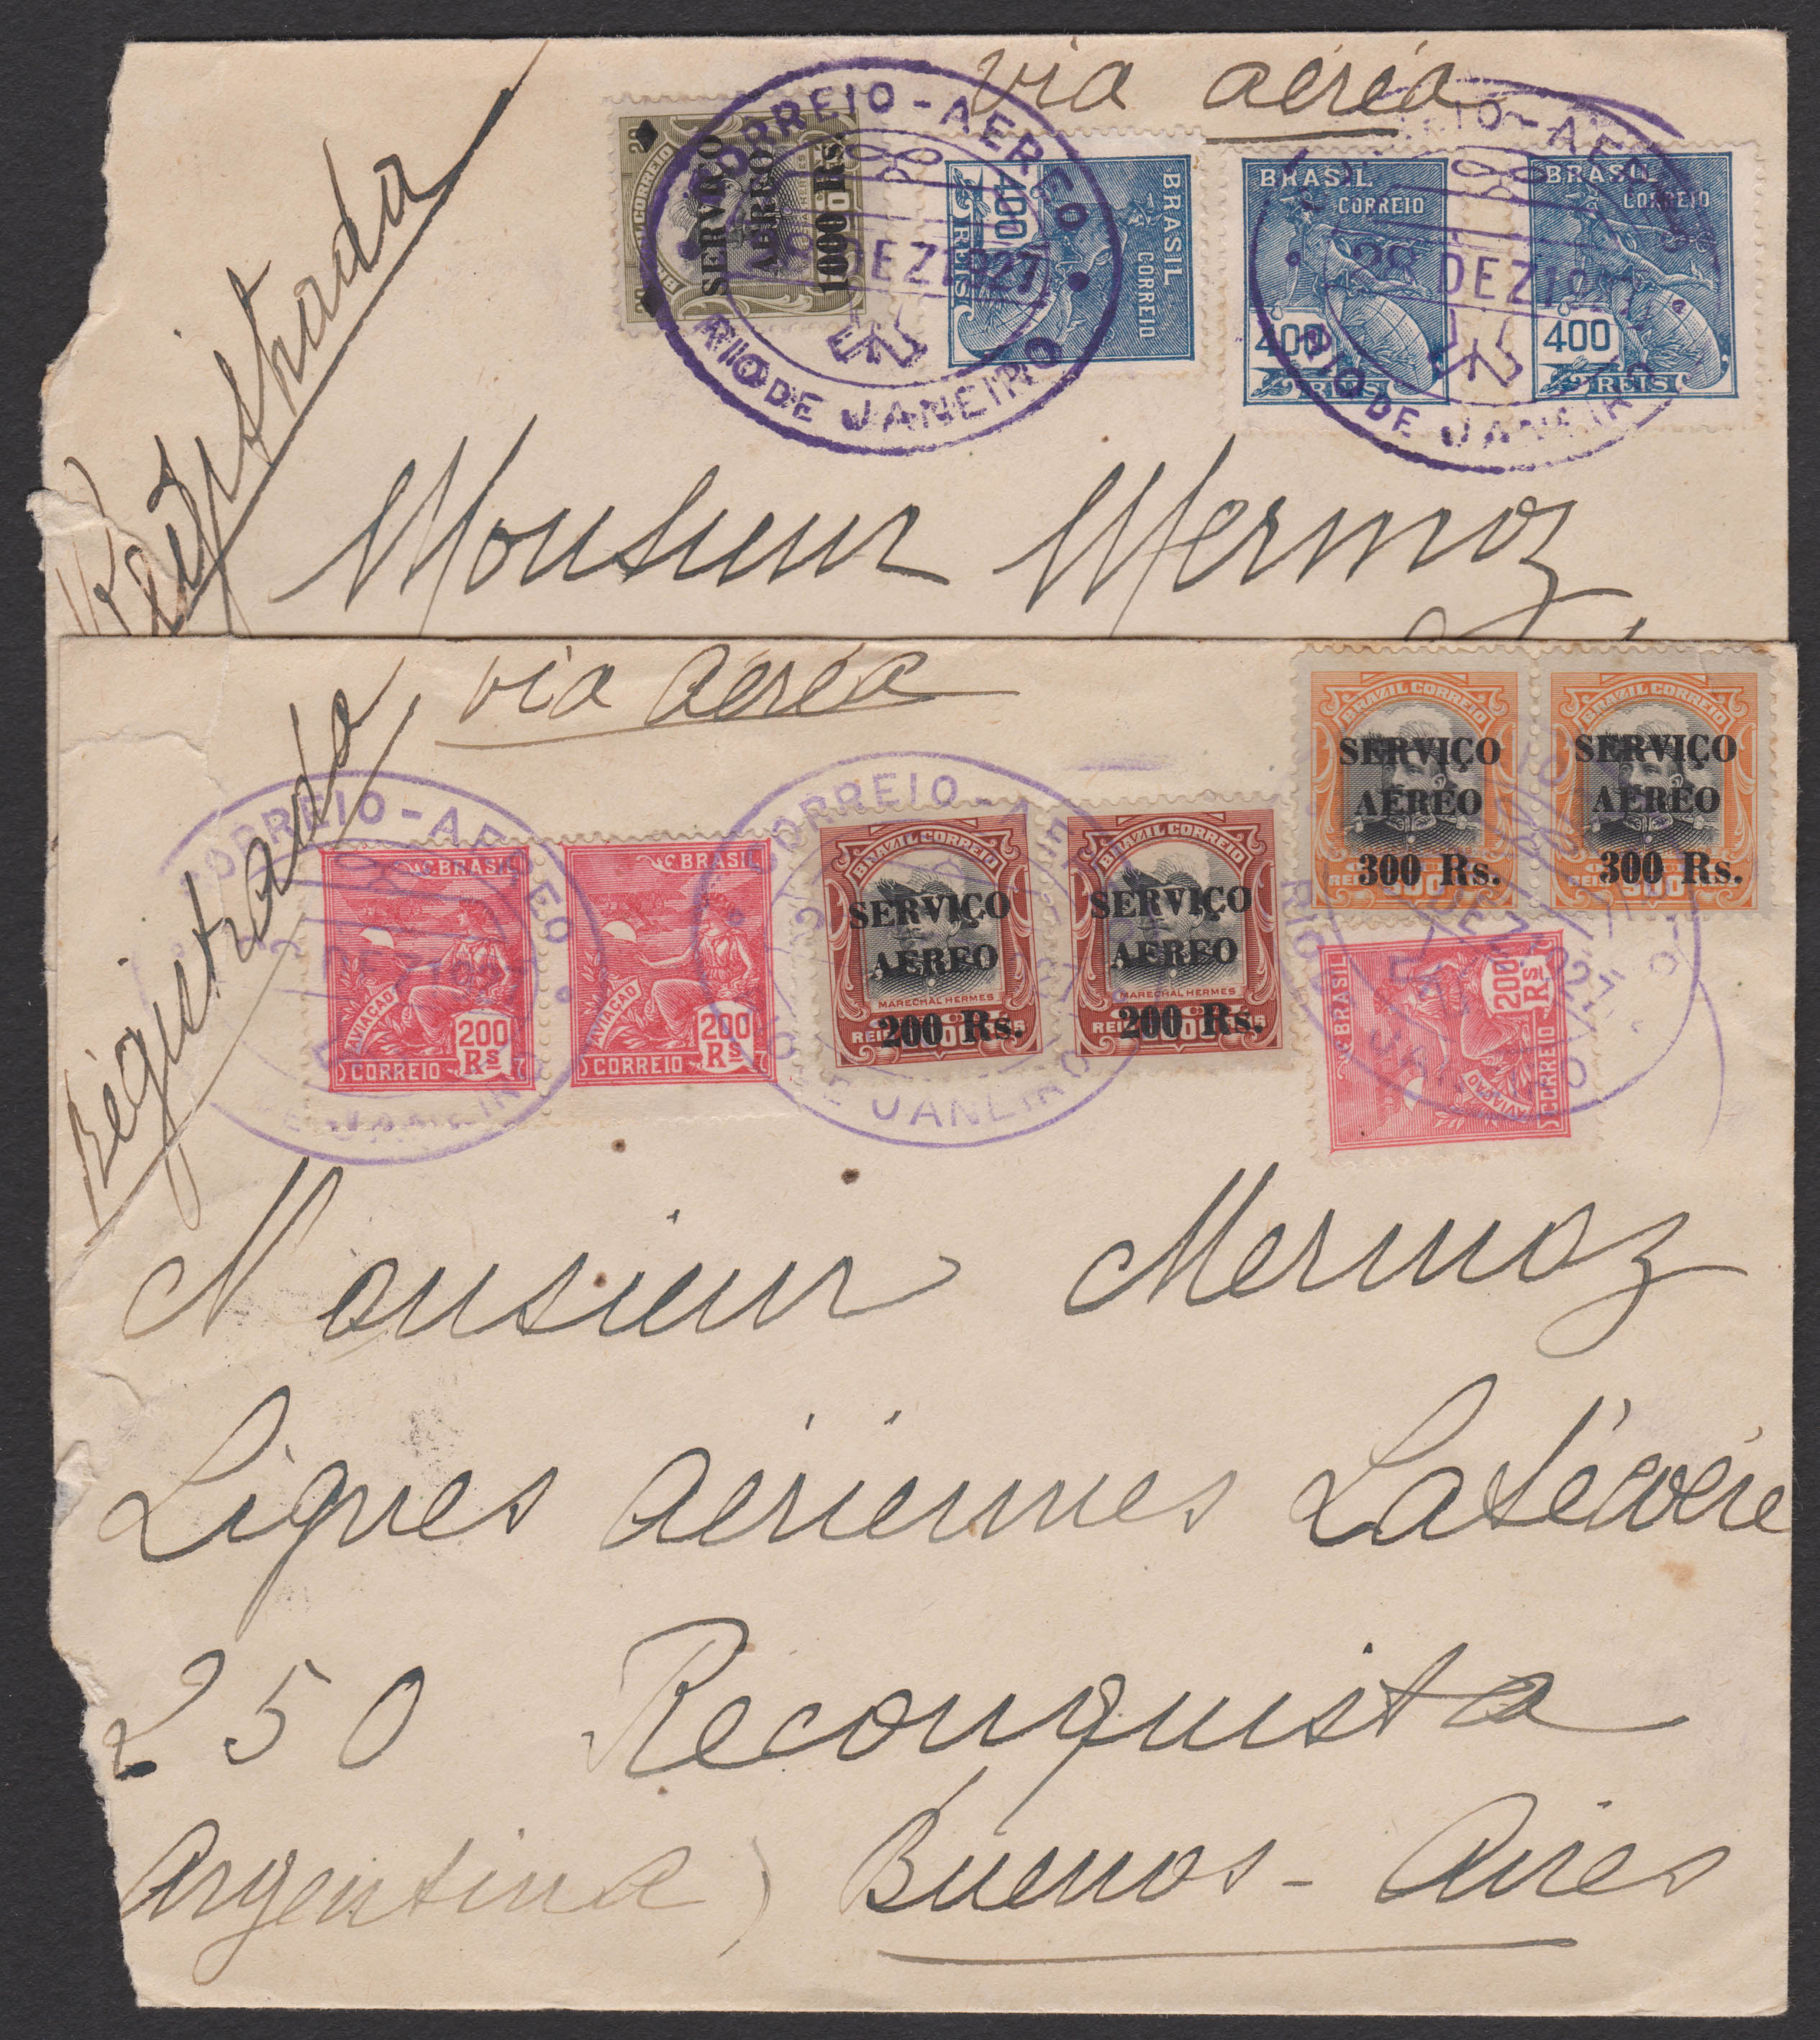 via aérea
Registrada
CORREIO-AEREO
28 DEZ 1927
RIO DE JANEIRO
SERVIÇO
AEREO
1000 Rs.
BRASIL
CORREIO
400
REIS
CORREIO-AEREO
28 DEZ 192
RIO DE JANEIRO
BRASIL
CORREIO
400
REIS
BRASIL
CORREIO
400
REIS
Monsieur Mermoz
via aérea
Régistrada
CORREIO-AEREO
DEZ 1927
JANEIR
BRASIL
AVIAÇÃO
200
Rs
CORREIO
BRASIL
AVIAÇÃO
200
Rs
CORREIO
CORREIO-AER
DE JANEIRO
BRAZIL CORREIO
SERVIÇO
AEREO
MARECHAL HERMES
200 Rs.
BRAZIL CORREIO
SERVIÇO
AEREO
MARECHAL HERMES
200 Rs.
BRAZIL CORREIO
SERVIÇO
AÉREO
300 Rs.
BRAZIL CORREIO
SERVIÇO
AÉREO
300 Rs.
BRASIL
AVIAÇÃO
200
Rs
CORREIO
DEZ 1927
RIO JANEIRO
Monsieur Mermoz
Lignes aériennes Latécoère
250 Reconquista
Argentina) Buenos-Aires